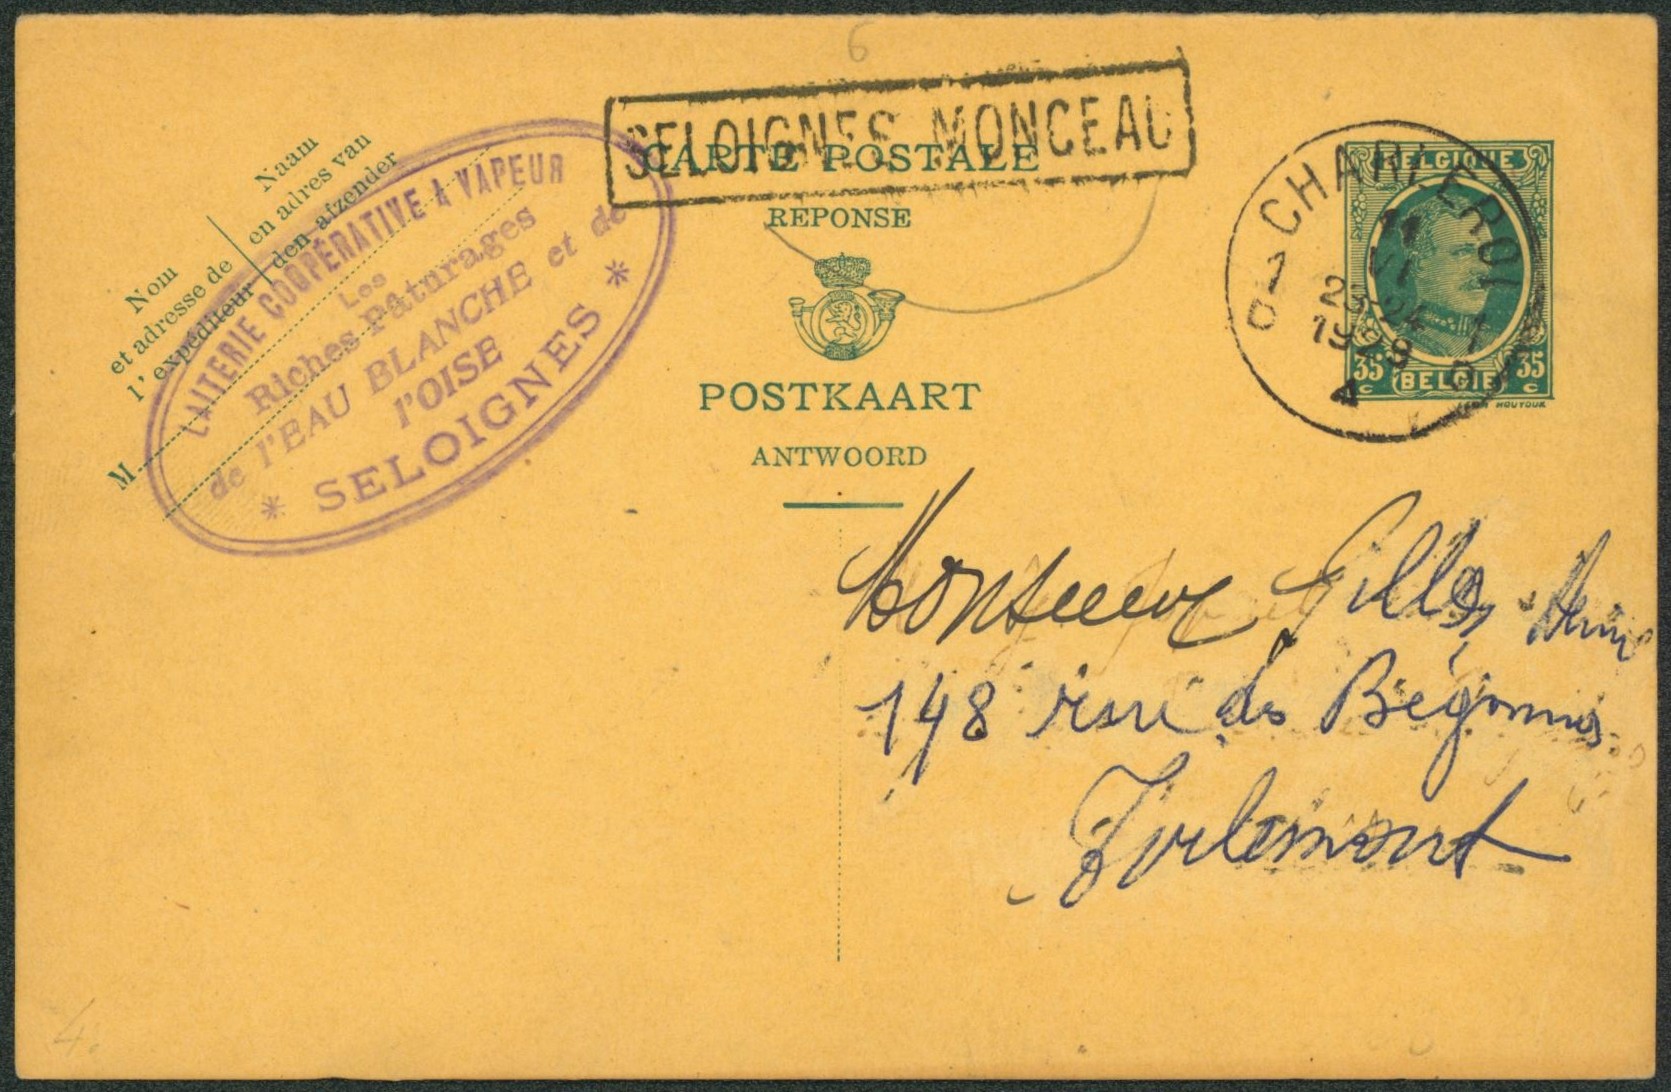 6
SELOIGNES MONCEAU
CARTE POSTALE
REPONSE
POSTKAART
ANTWOORD
Naam
en adres van
den afzender
Nom
et adresse de
l'expéditeur
M
LAITERIE COOPÉRATIVE A VAPEUR
Les
Riches-Paturages
de l'EAU BLANCHE et de
l'OISE
* SELOIGNES *
BELGIQUE
35 BELGIË 35
C C
HOUYOUX
CHARLEROI 1
11
VI
23-24
1929
A
Monsieur Gilles
148 rue des Bégonias
Tirlemont
4.